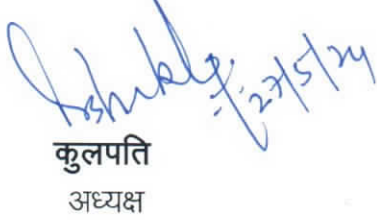 27/5/24
कुलपति
अध्यक्ष